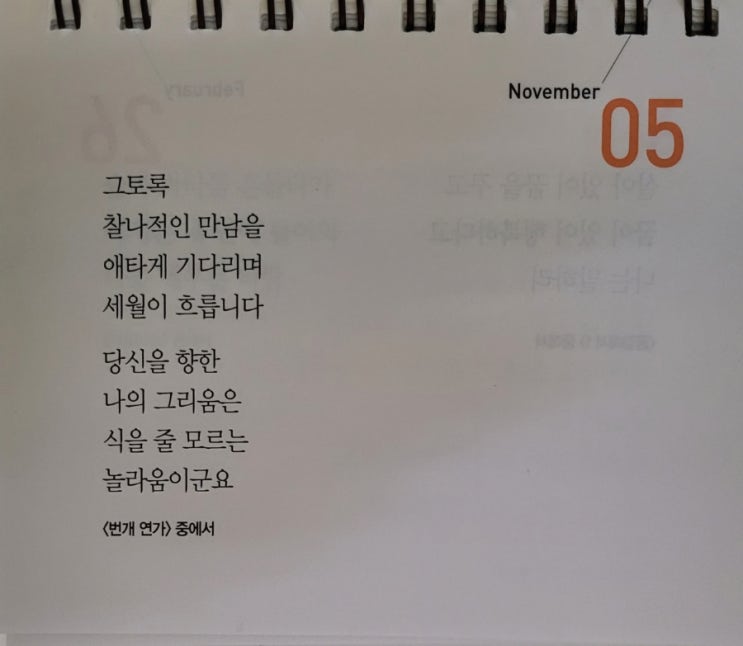 November
05
그토록
찰나적인 만남을
애타게 기다리며
세월이 흐릅니다
당신을 향한
나의 그리움은
식을 줄 모르는
놀라움이군요
<번개 연가> 중에서